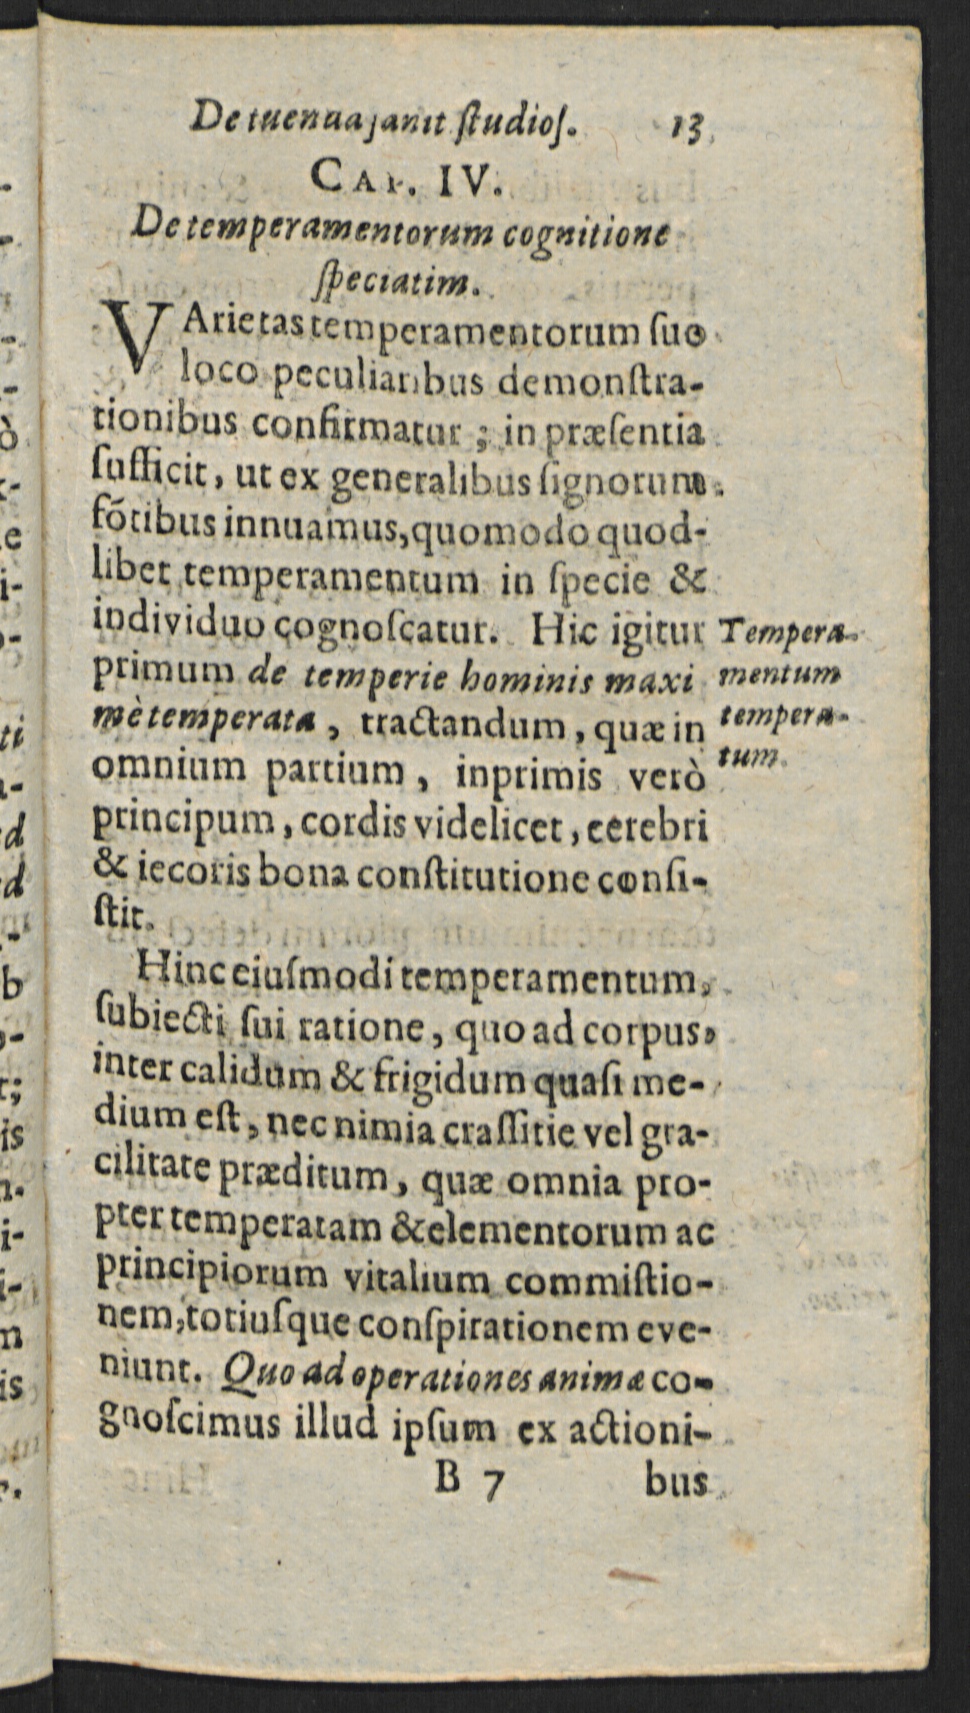 De tuenda sanit ſtudioſ. 13
CAP. IV.
De temperamentorum cognitione
ſpeciatim.
VArietas temperamentorum ſuo
loco peculiaribus demonſtra-
tionibus confirmatur ; in præſentia
ſufficit, ut ex generalibus ſignorum
fōtibus innuamus, quomodo quod-
libet temperamentum in ſpecie &
individuo cognoſcatur. Hic igitur
primum de temperie hominis maxi
mè temperata, tractandum, quæ in
omnium partium, inprimis verò
principum, cordis videlicet, cerebri
& iecoris bona conſtitutione conſi-
ſtit.
Tempera-
mentum
tempera-
tum.
Hinc eiuſmodi temperamentum,
ſubiecti ſui ratione, quo ad corpus,
inter calidum & frigidum quaſi me-
dium eſt, nec nimia craſſitie vel gra-
cilitate præditum, quæ omnia pro-
pter temperatam & elementorum ac
principiorum vitalium commiſtio-
nem, totiuſque conſpirationem eve-
niunt. Quo ad operationes animæ co-
gnoſcimus illud ipſum ex actioni-
B 7 bus